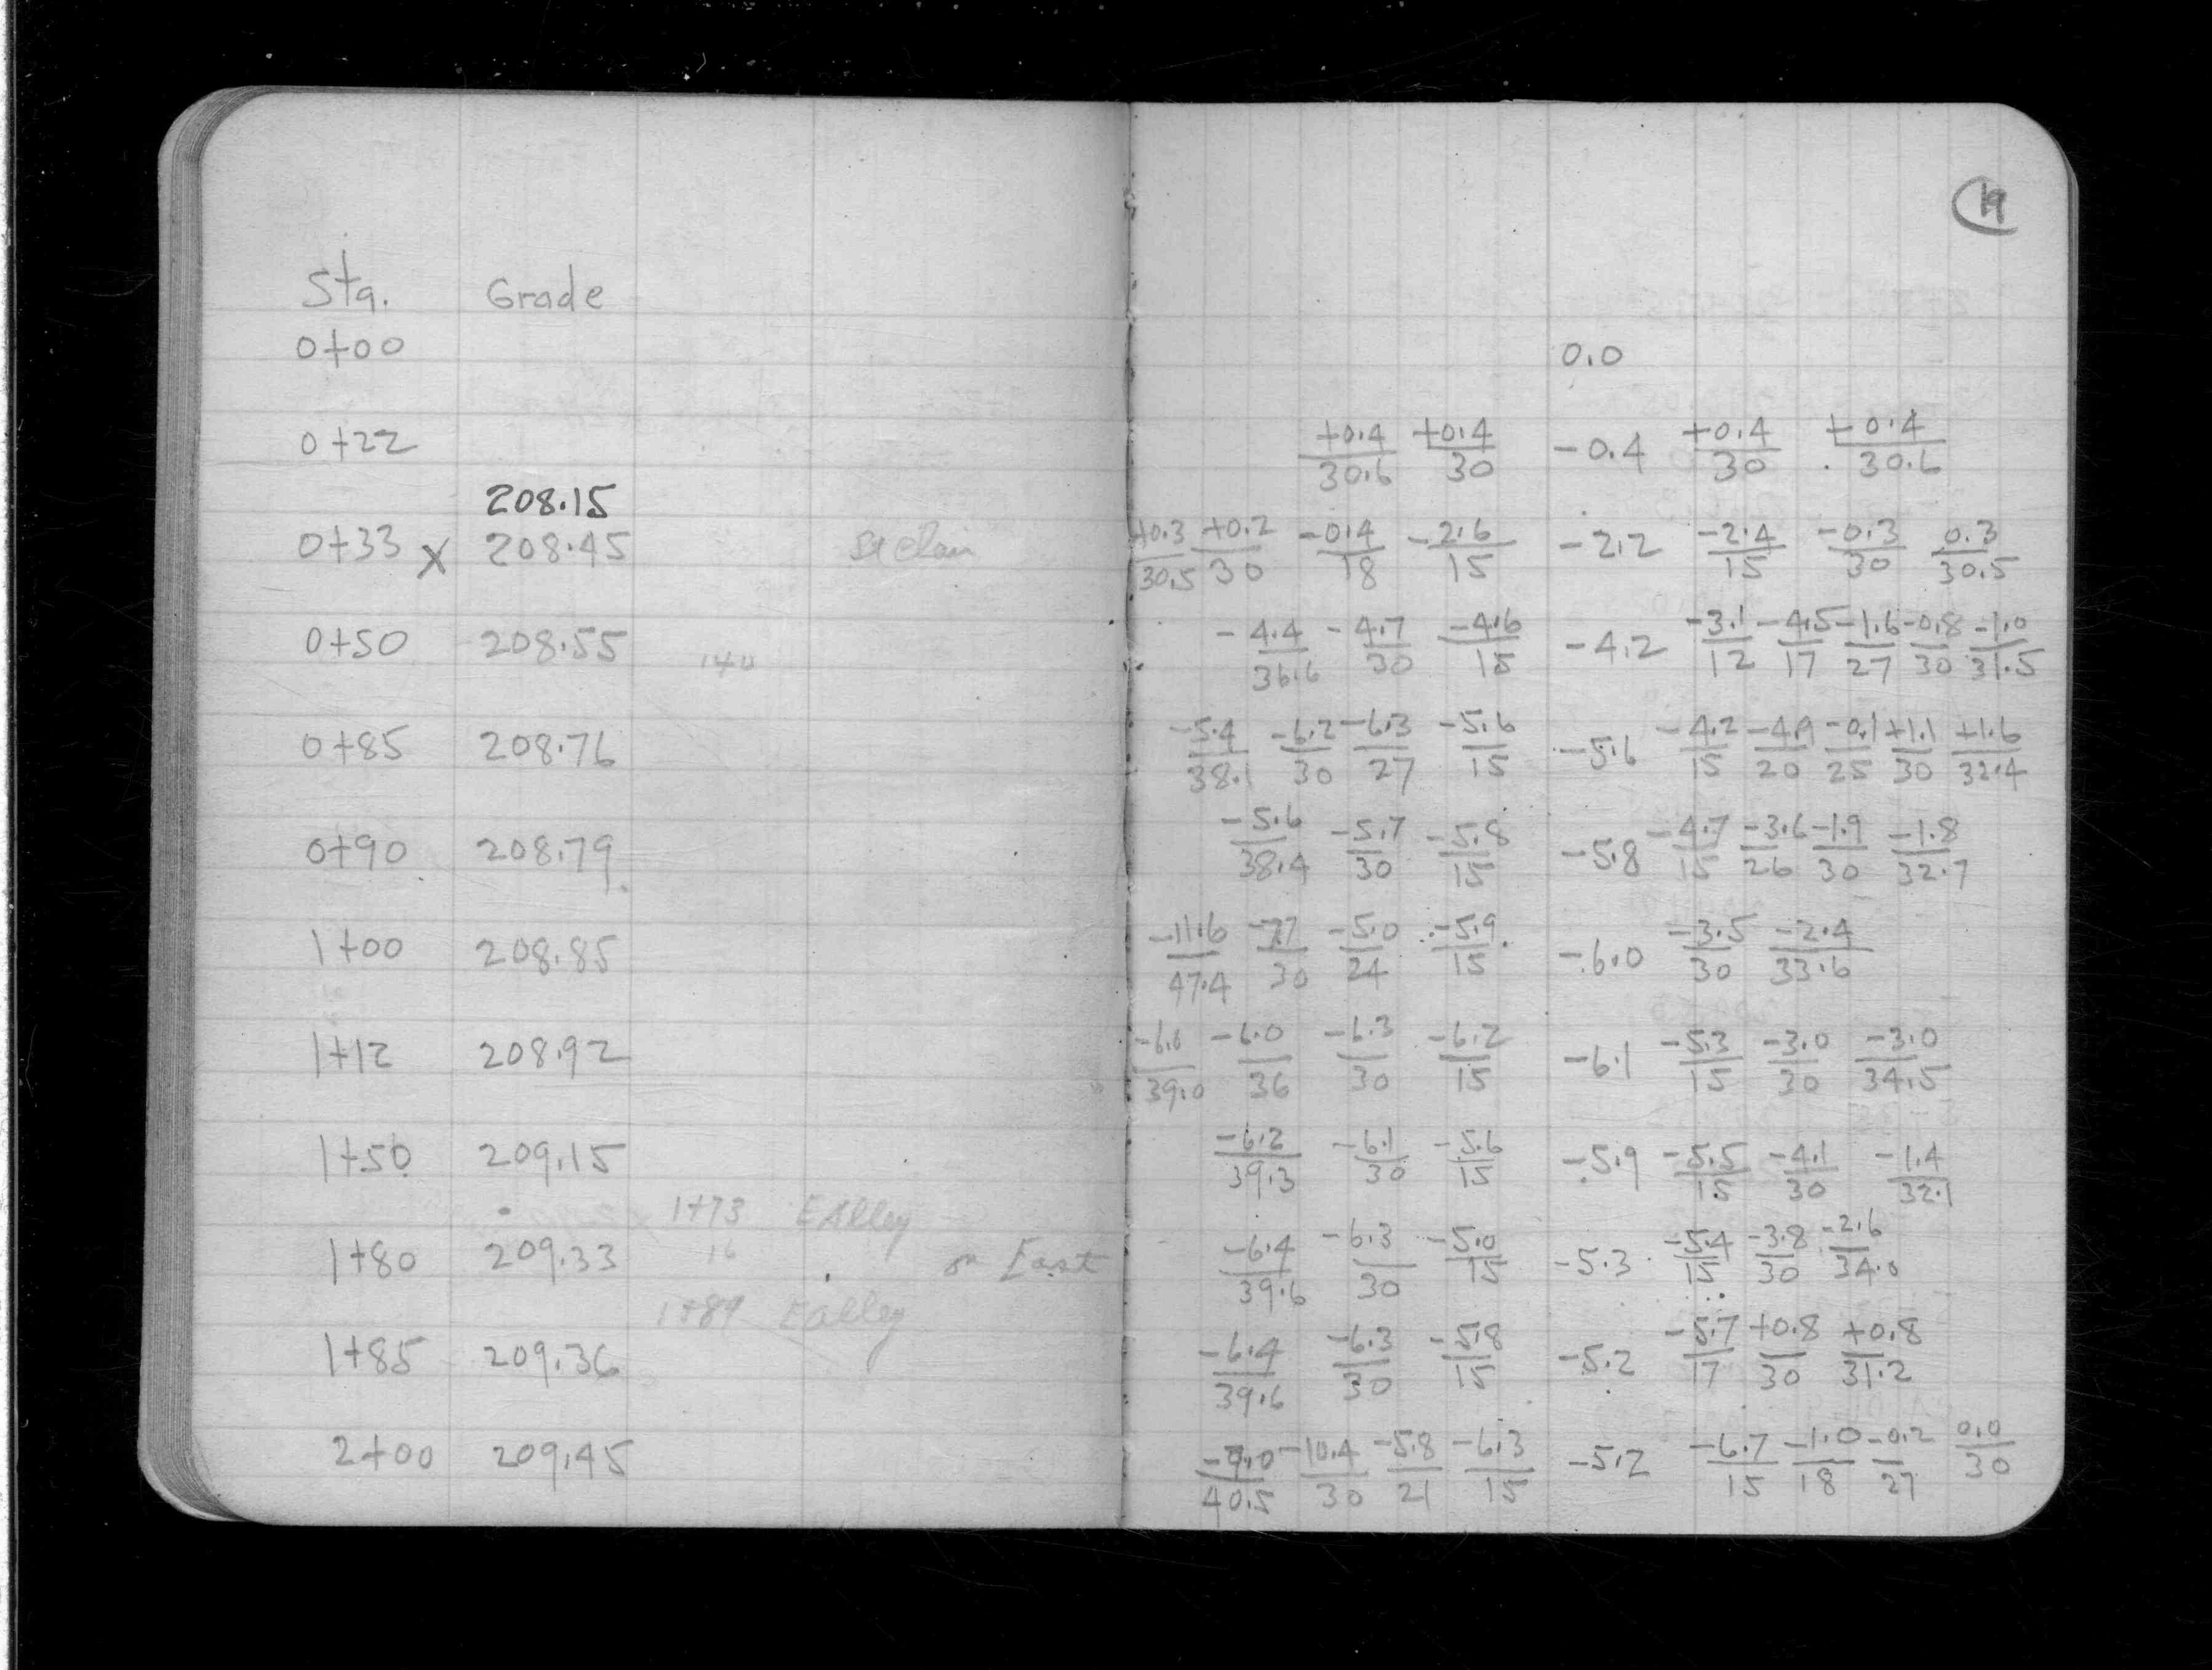 19
Sta. Grade
0+00 0.0
0+22 +0.4/30.6 +0.4/30 -0.4 +0.4/30 +0.4/30.6
208.15
0+33 X 208.45 St Clair +0.3/30.5 +0.2/30 -0.4/18 -2.6/15 -2.2 -2.4/15 -0.3/30 0.3/30.5
0+50 208.55 -4.4/36.6 -4.7/30 -4.6/15 -4.2 -3.1/12 -4.5/17 -1.6/27 -0.8/30 -1.0/31.5
0+85 208.76 -5.4/38.1 -6.2/30 -6.3/27 -5.6/15 -5.6 -4.2/15 -4.9/20 -0.1/25 +1.1/30 +1.6/32.4
0+90 208.79 -5.6/38.4 -5.7/30 -5.8/15 -5.8 -4.7/15 -3.6/26 -1.9/30 -1.8/32.7
1+00 208.85 -11.6/47.4 -7.7/30 -5.0/24 -5.9/15 -6.0 -3.5/30 -2.4/33.6
1+12 208.92 -6.0/39.0 -6.0/36 -6.3/30 -6.2/15 -6.1 -5.3/15 -3.0/30 -3.0/34.5
1+50 209.15 -6.2/39.3 -6.1/30 -5.6/15 -5.9 -5.5/15 -4.1/30 -1.4/32.1
1+73 E Alley
1+80 209.33 16 on East -6.4/39.6 -6.3/30 -5.0/15 -5.3 -5.4/15 -3.8/30 -2.6/34.0
1+89 E alley
1+85 209.36 -6.4/39.6 -6.3/30 -5.8/15 -5.2 -5.7/17 +0.8/30 +0.8/31.2
2+00 209.45 -7.0/40.5 -10.4/30 -5.8/21 -6.3/15 -5.2 -6.7/15 -1.0/18 -0.2/27 0.0/30